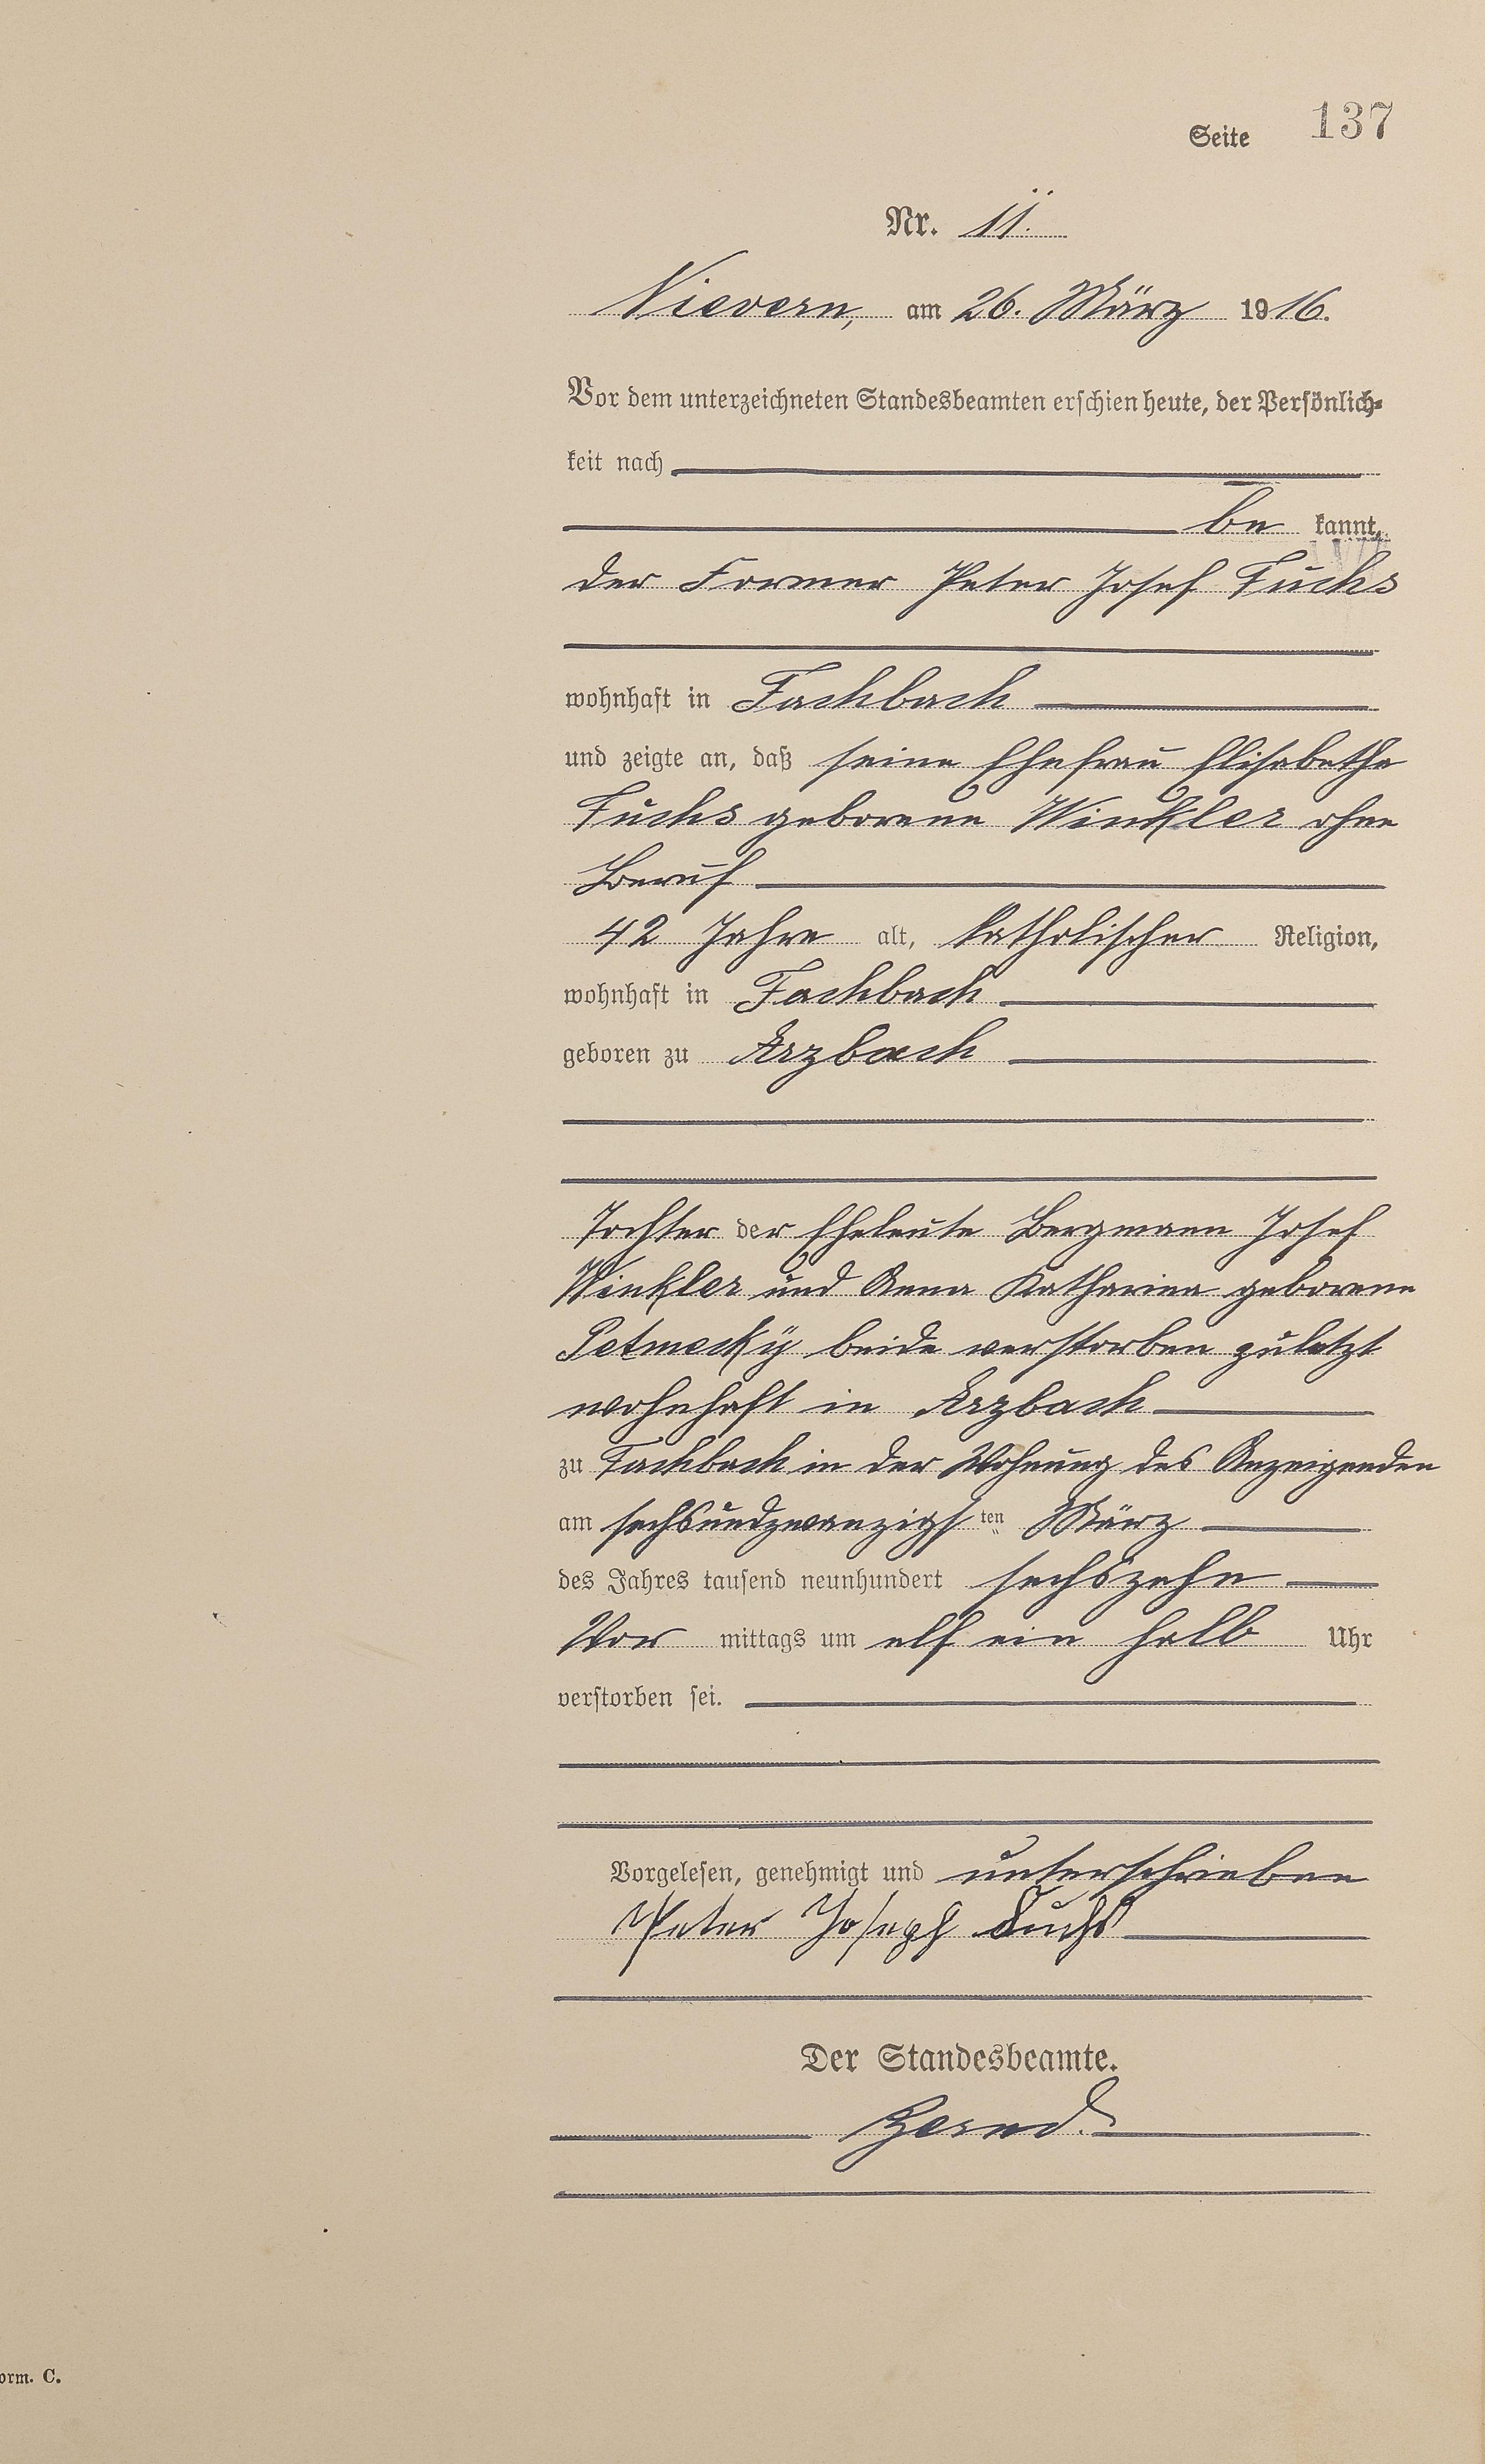 Seite 137
Nr. 11.
Nievern, am 26. März 1916.
Vor dem unterzeichneten Standesbeamten erschien heute, der Persönlich-
keit nach
be kannt,
der Former Peter Josef Fuchs
wohnhaft in Fachbach
und zeigte an, daß seine Ehefrau Elisabetha
Fuchs geborene Winkler ohne
Beruf
42 Jahre alt, katholischer Religion,
wohnhaft in Fachbach
geboren zu Arzbach
Tochter der Eheleute Bergmann Josef
Winkler und Anna Katharina geborene
Petmecky beide verstorben zuletzt
wohnhaft in Arzbach
zu Fachbach in der Wohnung des Anzeigenden
am sechsundzwanzigsten März
des Jahres tausend neunhundert sechszehn
Vor mittags um elf ein halb Uhr
verstorben sei.
Vorgelesen, genehmigt und unterschrieben
Peter Joseph Fuchs
Der Standesbeamte.
orm. C.